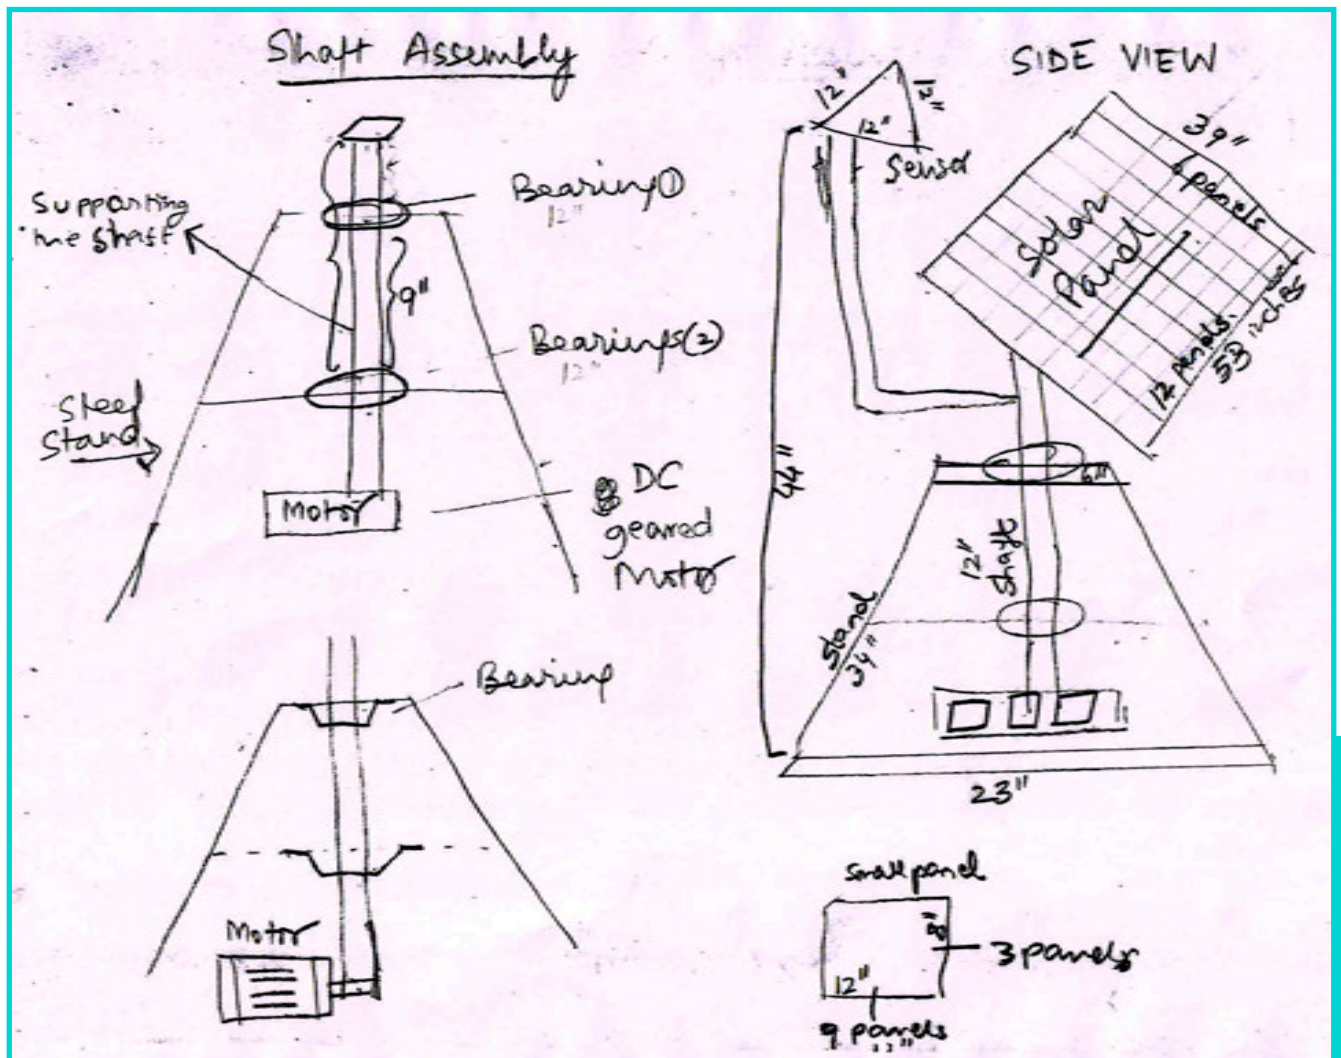 Shaft Assembly
Bearing ①
12"
Supporting
the Shaft
9"
Bearings ②
12"
Steel
Stand
Motor
DC
geared
Motor
Bearing
Motor
SIDE VIEW
12"
12"
12"
Sensor
39"
6 panels
Solar
Panel
12 panels.
53 inches
44"
6"
12"
Shaft
Stand
34"
23"
Small panel
8"
3 panels
12"
9 panels